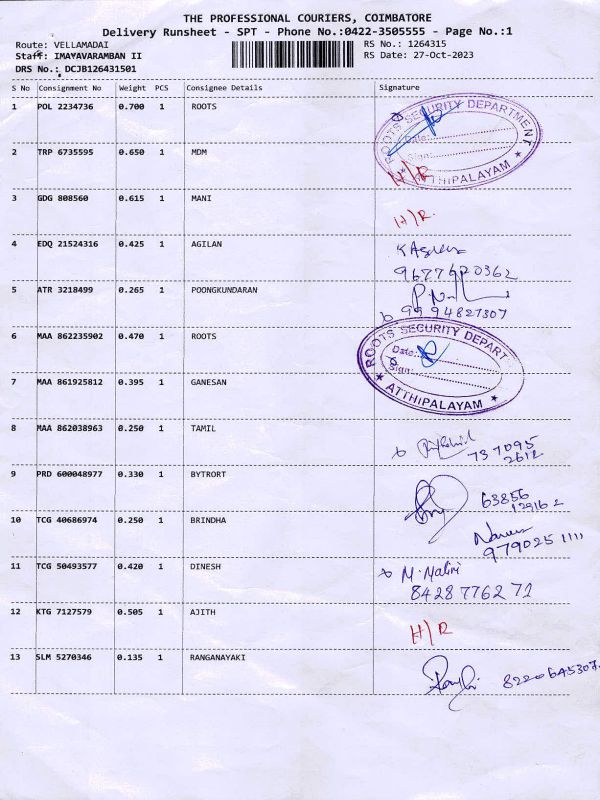 THE PROFESSIONAL COURIERS, COIMBATORE
Delivery Runsheet - SPT - Phone No.:0422-3505555 - Page No.:1
Route: VELLAMADAI
RS No.: 1264315
Staff: IMAYAVARAMBAN II
RS Date: 27-Oct-2023
DRS No.: DCJB126431501
S No Consignment No Weight PCS Consignee Details Signature
1 POL 2234736 0.700 1 ROOTS
ROOTS SECURITY DEPARTMENT
Date:
Sign:
ATTHIPALAYAM
2 TRP 6735595 0.650 1 MDM
H/R
3 GDG 808560 0.615 1 MANI
H/R.
4 EDQ 21524316 0.425 1 AGILAN
9677620362
5 ATR 3218499 0.265 1 POONGKUNDARAN
9994827307
6 MAA 862235902 0.470 1 ROOTS
ROOTS SECURITY DEPART
Date:
Sign:
ATTHIPALAYAM
7 MAA 861925812 0.395 1 GANESAN
8 MAA 862038963 0.250 1 TAMIL
737095
2612
9 PRD 600048977 0.330 1 BYTRORT
63856
129162
10 TCG 40686974 0.250 1 BRINDHA
9790251111
11 TCG 50493577 0.420 1 DINESH
M. Malini
8428776271
12 KTG 7127579 0.505 1 AJITH
H/R
13 SLM 5270346 0.135 1 RANGANAYAKI
8220645307